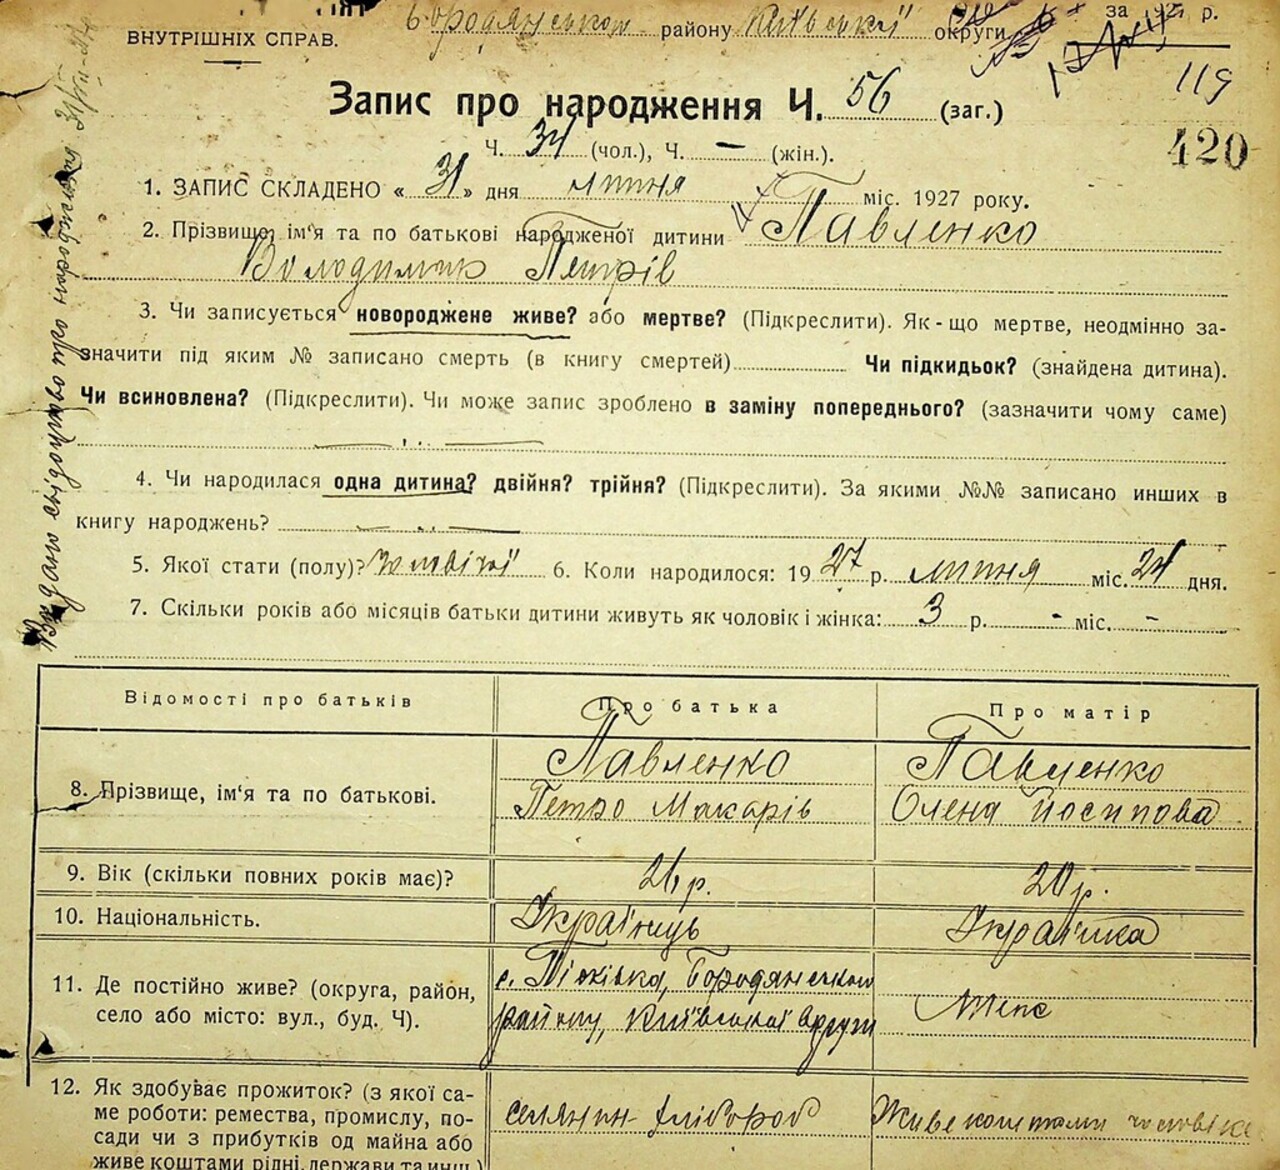 Бородянського району Київської округи за 1927 р.
ВНУТРІШНІХ СПРАВ.
119
Запис про народження Ч. 56 (заг.)
420
Ч. 34 (чол.), Ч. — (жін.).
1. ЗАПИС СКЛАДЕНО « 31 » дня липня міс. 1927 року.
2. Прізвище, ім'я та по батькові народженої дитини Павленко
Володимир Петрів
3. Чи записується новороджене живе? або мертве? (Підкреслити). Як-що мертве, неодмінно за-
значити під яким № записано смерть (в книгу смертей) Чи підкидьок? (знайдена дитина).
Чи всиновлена? (Підкреслити). Чи може запис зроблено в заміну попереднього? (зазначити чому саме)
4. Чи народилася одна дитина? двійня? трійня? (Підкреслити). За якими №№ записано инших в
книгу народжень?
5. Якої стати (полу)? чоловічої 6. Коли народилося: 1927 р. липня міс. 24 дня.
7. Скільки років або місяців батьки дитини живуть як чоловік і жінка: 3 р. - міс. -
Відомості про батьків Про батька Про матір
8. Прізвище, ім'я та по батькові. Павленко Павленко
Петро Макарів Олена Йосипова
9. Вік (скільки повних років має)? 21 р. 20 р.
10. Національність. Українець Українка
11. Де постійно живе? (округа, район, с. Пісківка, Бородянського
село або місто: вул., буд. Ч). району, Київської округи Теж
12. Як здобуває прожиток? (з якої са-
ме роботи: ремества, промислу, по- селянин-хлібороб Живе коштами чоловіка
сади чи з прибутків од майна або
живе коштами рідні, держави та инш.)